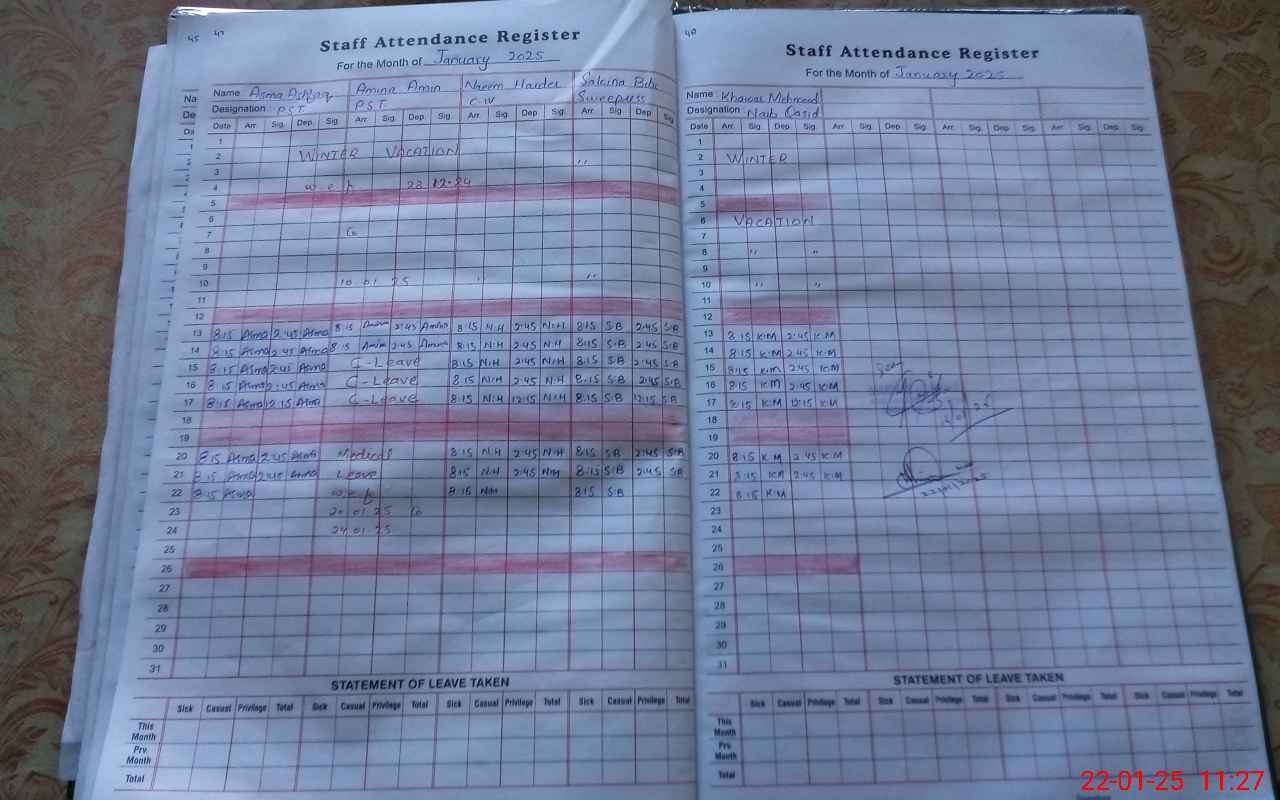 45 47
Staff Attendance Register
For the Month of January 2025
Name Asma Ashfaq Amina Amin Naeem Haider Sakina Bibi
Designation PST PST C-IV Sweepress
Date Arr. Sig. Dep. Sig. Arr. Sig. Dep. Sig. Arr. Sig. Dep. Sig. Arr. Sig. Dep. Sig.
1
2 WINTER VACATION ,,
3
4 w e f 23-12-24
5
6
7 to
8
9
10 10 01 25 ,, ,,
11
12
13 8:15 Asma 2:45 Asma 8:15 Amina 2:45 Amina 8:15 N.H 2:45 N.H 8:15 S.B 2:45 S.B
14 8:15 Asma 2:45 Asma 8:15 Amina 2:45 Amina 8:15 N.H 2:45 N.H 8:15 S.B 2:45 S.B
15 8:15 Asma 2:45 Asma C-Leave 8:15 N.H 2:45 N.H 8:15 S.B 2:45 S.B
16 8:15 Asma 2:45 Asma C-Leave 8:15 N.H 2:45 N.H 8:15 S.B 2:45 S.B
17 8:15 Asma 12:15 Asma C-Leave 8:15 N.H 12:15 N.H 8:15 S.B 12:15 S.B
18
19
20 8:15 Asma 2:45 Asma Medical 8:15 N.H 2:45 N.H 8:15 S.B 2:45 S.B
21 8:15 Asma 2:45 Asma Leave 8:15 N.H 2:45 N.H 8:15 S.B 2:45 S.B
22 8:15 Asma w e f 8:15 N.H 8:15 S.B
23 20 01 25 to
24 24 01 25
25
26
27
28
29
30
31
STATEMENT OF LEAVE TAKEN
Sick Casual Privilege Total Sick Casual Privilege Total Sick Casual Privilege Total Sick Casual Privilege Total
This Month
Prv. Month
Total
48
Staff Attendance Register
For the Month of January 2025
Name Khawar Mehmood
Designation Naib Qasid
Date Arr. Sig. Dep. Sig. Arr. Sig. Dep. Sig. Arr. Sig. Dep. Sig. Arr. Sig. Dep. Sig.
1
2 WINTER
3
4
5
6 VACATION
7
8 ,, ,,
9
10 ,, ,,
11
12
13 8:15 K.M 2:45 K.M
14 8:15 K.M 2:45 K.M
15 8:15 K.M 2:45 K.M
16 8:15 K.M 2:45 K.M
17 8:15 K.M 12:15 K.M
18
19
20 8:15 K.M 2:45 K.M
21 8:15 K.M 2:45 K.M
22 8:15 K.M
22/01/2025
23
24
25
26
27
28
29
30
31
STATEMENT OF LEAVE TAKEN
Sick Casual Privilege Total Sick Casual Privilege Total Sick Casual Privilege Total Sick Casual Privilege Total
This Month
Prv. Month
Total
22-01-25 11:27